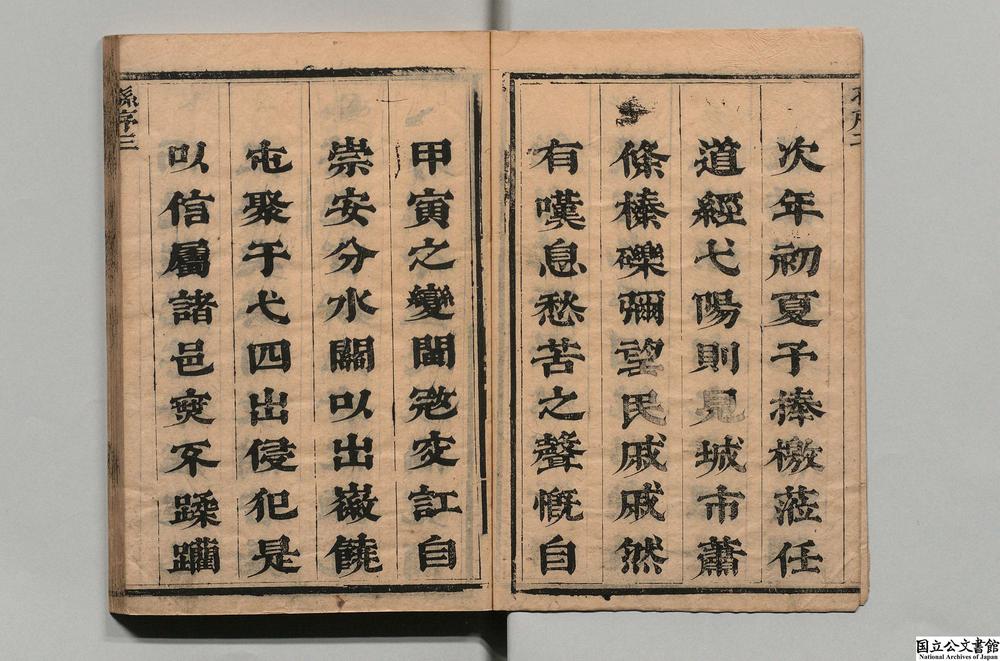 次年初夏予捧檄蒞任
道經弋陽則見城市蕭
條榛礫彌望民戚戚然
有嘆息愁苦之聲慨自
甲寅之變閩宼突訌自
崇安分水關以出嶶饒
屯聚于弋四出侵犯是
以信屬諸邑突不蹂躪
孫序三
国立公文書館
National Archives of Japan